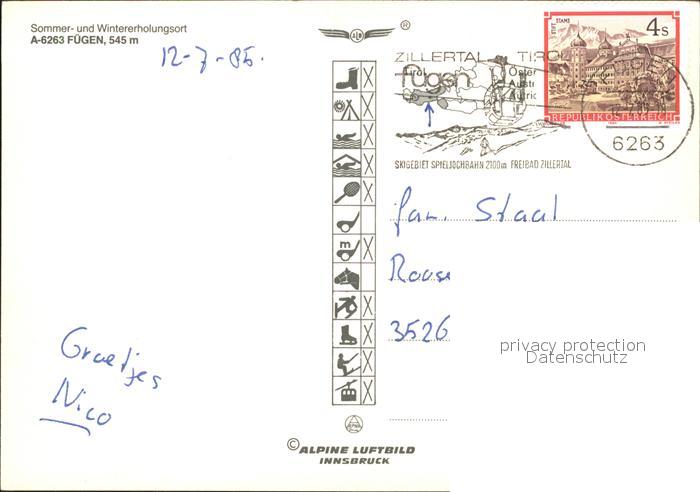 Sommer- und Wintererholungsort
A-6263 FÜGEN, 545 m
12-7-85.
®
ZILLERTAL TIROL
Tirol
Fügen
SKIGEBIET SPIELJOCHBAHN 2100m FREIBAD ZILLERTAL
STIFT STAMS
4s
REPUBLIK ÖSTERREICH
6263
m
fam. Staal
3526
privacy protection
Datenschutz
Groetjes
Nico
© ALPINE LUFTBILD
INNSBRUCK